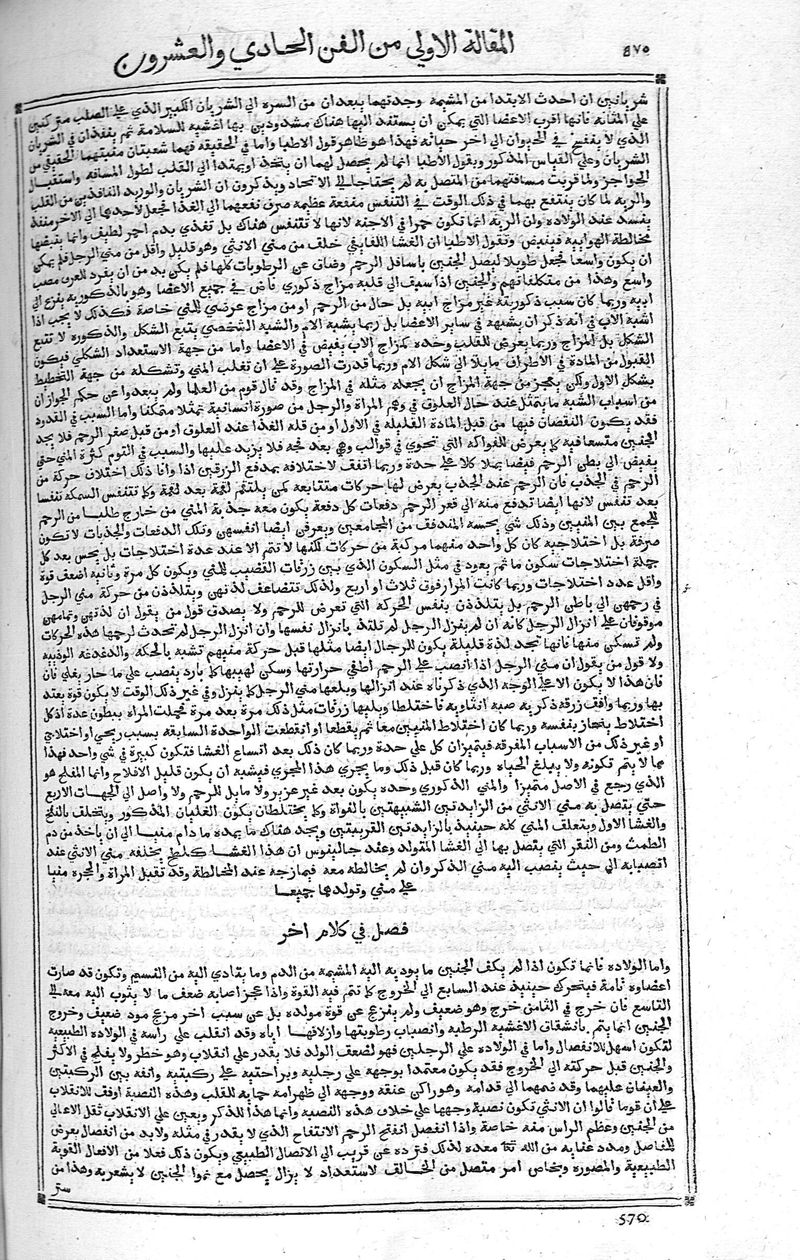 المقالة الاولي من الفن الحادي والعشرون
٥٧٥
شريانين ان احدث الابتدا من المشيمة وجدتهما ينعدان من السره الي الشريان الكبير الذي علي الصلب متركئين
علي المثانه فانها اقرب الاعضا التي يمكن ان يستند اليها هناك مشدودين بها اغشيه للسلامة ثم ينفذان في الشريان
الذي لا ينفسخ في الحيوان الي اخر حياته فهذا هو ظاهر قول الاطبا واما في الحقيقه فهما شعبتان منبتهما الحقيقي من
الشريان وعلي القياس المذكور ويقول الاطبا انما لم يحصل لهما ان يتخذ او يمتدا الي القلب لطول المسافه واستقبال
الحواجز ولما قربت مسافتهما من المتصل به لم يحتاجا الي الاتحاد ويذكرون ان الشريان والوريد النافذين من القلب
والريه لما كان ينتفع بهما في ذلك الوقت في التنفس منفعة عظيمه صرف نفعهما الي الغذا فجعل لاحدهما الي الاخر منفذ
يفسد عند الولاده وان الريه انما تكون حمرا في الاجنه لانها لا تتنفس هناك بل تغتذي بدم احمر لطيف وانما يبيضها
مخالطة الهوايية فيبيض وتقول الاطبا ان الغشا اللفايفي خلف من مني الانثي وهو قليل واقل من مني الرجل فلم يمكن
ان يكون واسعا فجعل طويلا ليصل الجنين باسافل الرحم وضاق عن الرطوبات كلها فلم يكن بد من ان يفرد للعرق مصب
واسع وهذا من متكلفاتهم والجنين اذا سبق الي قلبه مزاج ذكوري فاض في جميع الاعضا وهو بالذكوريه ينزع الي
ابيه وربما كان سبب ذكوريته غير مزاج ابيه بل حال من الرحم او من مزاج عرضي للمني خاصة فكذلك لا يجب اذا
اشبه الاب في انه ذكر ان يشبهه في ساير الاعضا بل ربما يشبه الام والشبه الشخصي يتبع الشكل والذكوره لا تتبع
الشكل بل المزاج وربما يعرض للقلب وحده كمزاج الاب يفيض في الاعضا واما من جهة الاستعداد الشكلي فيكون
القبول من المادة في الاطراف مايلا الي شكل الام وربما قدرت الصورة علي ان تغلب المني وتشكله من جهة التخطيط
بشكل الاول ولكن يعجز من جهة المزاج ان يجعله مثله في المزاج وقد قال قوم من العلما ولم يبعدوا عن حكم الجواز ان
من اسباب الشبه ما يتمثل عند حال العلوق في وهم المراة والرجل من صورة انسانية تمثلا متمكنا واما السبب في القدود
فقد يكون النقصان فيها من قبل المادة القليلة في الاول او من قلة الغذا عند العلوق او من قبل صغر الرحم فلا يجد
الجنين متسعا فيه كما يعرض للفواكه التي تحوي في قوالب وهي بعد فجة فلا يزيد عليها والسبب في التوم كثرة المني حتي
يفيض الي بطن الرحم فيضا يملا كلا علي حدة وربما اتفق لاختلافه بمدفع الزرقين اذا وافا ذلك اختلاف حركة من
الرحم في الجذب فان الرحم عند الجذب يعرض لها حركات متتابعه كمن يلتقم لقمة بعد لقمة وكما تتنفس السمكه تنفسا
بعد تنفس لانها ايضا تدفع منه الي قعر الرحم دفعات كل دفعة يكون معه جذبة المني من خارج طلبا من الرحم
للجمع بين المنيين وذلك شي يحسه المتفقد من المجامعين ويعرفن ايضا انفسهن وتلك الدفعات والجذبات لا تكون
صرفة بل اختلاجيه كان كل واحد منهما مركبة من حركات لكنها لا تتم الا عند عدة اختلاجات بل يحس بعد كل
جملة اختلاجات سكون ما ثم يعود في مثل السكون الذي بين زرقات القضيب للمني ويكون كل مرة وثانيه اضعف قوة
واقل عدد اختلاجات وربما كانت المرار فوق ثلاث او اربع ولذلك تتضاعف لذتهن ويتلذذن من حركة مني الرجل
في رحمهن الي باطن الرحم بل يتلذذن بنفس الحركة التي تعرض للرحم ولا يصدق قول من يقول ان لذتهن وتمامهن
موقوفان علي انزال الرجل كانه ان لم ينزل الرجل لم تلتذ بانزال نفسها وان انزل الرجل لم تحدث لرحمها هذه الحركات
ولم تسكن منها فانها تجد لذة قليلة يكون للرجال ايضا مثلها قبل حركة منيهم تشبه بالحكة والدغدغه الودييه
ولا قول من يقول ان مني الرجل اذا انصب علي الرحم اطفي حرارتها وسكن لهيبها كما بارد يصب علي ما حار يغلي فان
فان هذا لا يكون الا علي الوجه الذي ذكرناه عند انزالها وبلعها مني الرجل كما ينزل وفي غير ذلك الوقت لا يكون قوة يعتد
بها وربما وافق زرقة ذكريه صبه انثاويه فاختلطا ويليها زرقات مثل ذلك مرة بعد مرة فحملت المراة ببطون عدة اذ كل
اختلاط ينحاز بنفسه وربما كان اختلاط المنيين معا ثم يقطعا او انقطعت الواحدة السابقه بسبب ريحي او اختلاجي
او غير ذلك من الاسباب المفرقه فيتميزان كل علي حدة وربما كان ذلك بعد اتساع الغشا فتكون كبيرة في شي واحد فهذا
مما لا يتم تكونه ولا يبلغ الحياه وربما كان قبل ذلك وما يجري هذا المجري فيشبه ان يكون قليل الافلاح وانما المفلح هو
الذي رجع في الاصل متميزا والمني الذكوري وحده يكون بعد غير عزيز ولا مايل للرحم ولا واصل الي الجهات الاربع
حتي يتصل به مني الانثي من الزايدتين الشبيهتين بالنواة وكما يختلطان يكون الغليان المذكور ويتخلف بالنفخ
والغشا الاول ويتعلق المني كله حينيذ بالزايدتين القرنيتين ويجد هناك ما يمده ما دام منيا الي ان ياخذ من دم
الطمث ومن النقر التي يتصل بها الي الغشا المتولد وعند جالينوس ان هذا الغشا كلطخ يخلفه مني الانثي عند
انصبابه الي حيث ينصب اليه مني الذكر وان لم يخالطه معه فيمازجه عند المخالطة وقد تقبل المراة والحجره منيا
علي مني وتولدهما جميعا
فصل في كلام اخر
واما الولاده فانما تكون اذا لم يكف الجنين ما يوديه اليه المشيمه من الدم وما يتادي اليه من النسيم وتكون قد صارت
اعضاوه تامة فيتحرك حينيذ عند السابع الي الخروج كما تتم فيه القوة واذا عجز اصابه ضعف ما لا يثوب اليه معه الي
التاسع فان خرج في الثامن خرج وهو ضعيف ولم ينزعج عن قوة مولده بل عن سبب اخر مزعج مود ضعيف وخروج
الجنين انما يتم بانشقاق الاغشيه الرطبه وانصباب رطوبتها وازلاقها اياه وقد انقلب علي راسه في الولاده الطبيعيه
لتكون اسهل للانفصال واما في الولاده علي الرجلين فهو لضعف الولد فلا يقدر علي انقلاب وهو خطر ولا يفلح في الاكثر
والجنين قبل حركته الي الخروج فقد يكون معتمدا بوجهه علي رجليه وبراحتيه علي ركبتيه وانفه بين الركبتين
والعينان عليهما وقد ضمهما الي قدامه وهو راكن عنقه ووجهه الي ظهر امه حماية للقلب وهذه النصبة اوفق للانقلاب
علي ان قوما قالوا ان الانثي تكون نصبة وجهها علي خلاف هذه النصبه وانما هذا للذكر ويعين علي الانقلاب ثقل الاعالي
من الجنين وعظم الراس منه خاصة واذا انفصل انفتح الرحم الانفتاح الذي لا يقدر في مثله ولابد من انفصال يعرض
للمفاصل ومدد عنايه من الله تعا معده لذلك فترده عن قريب الي الاتصال الطبيعي ويكون ذلك فعلا من الافعال القوية
الطبيعية والمصوره وبخاص امر متصل من الخالف لاستعداد لا يزال يحصل مع نموا الجنين لا يشعر به وهذا من
سر
570.